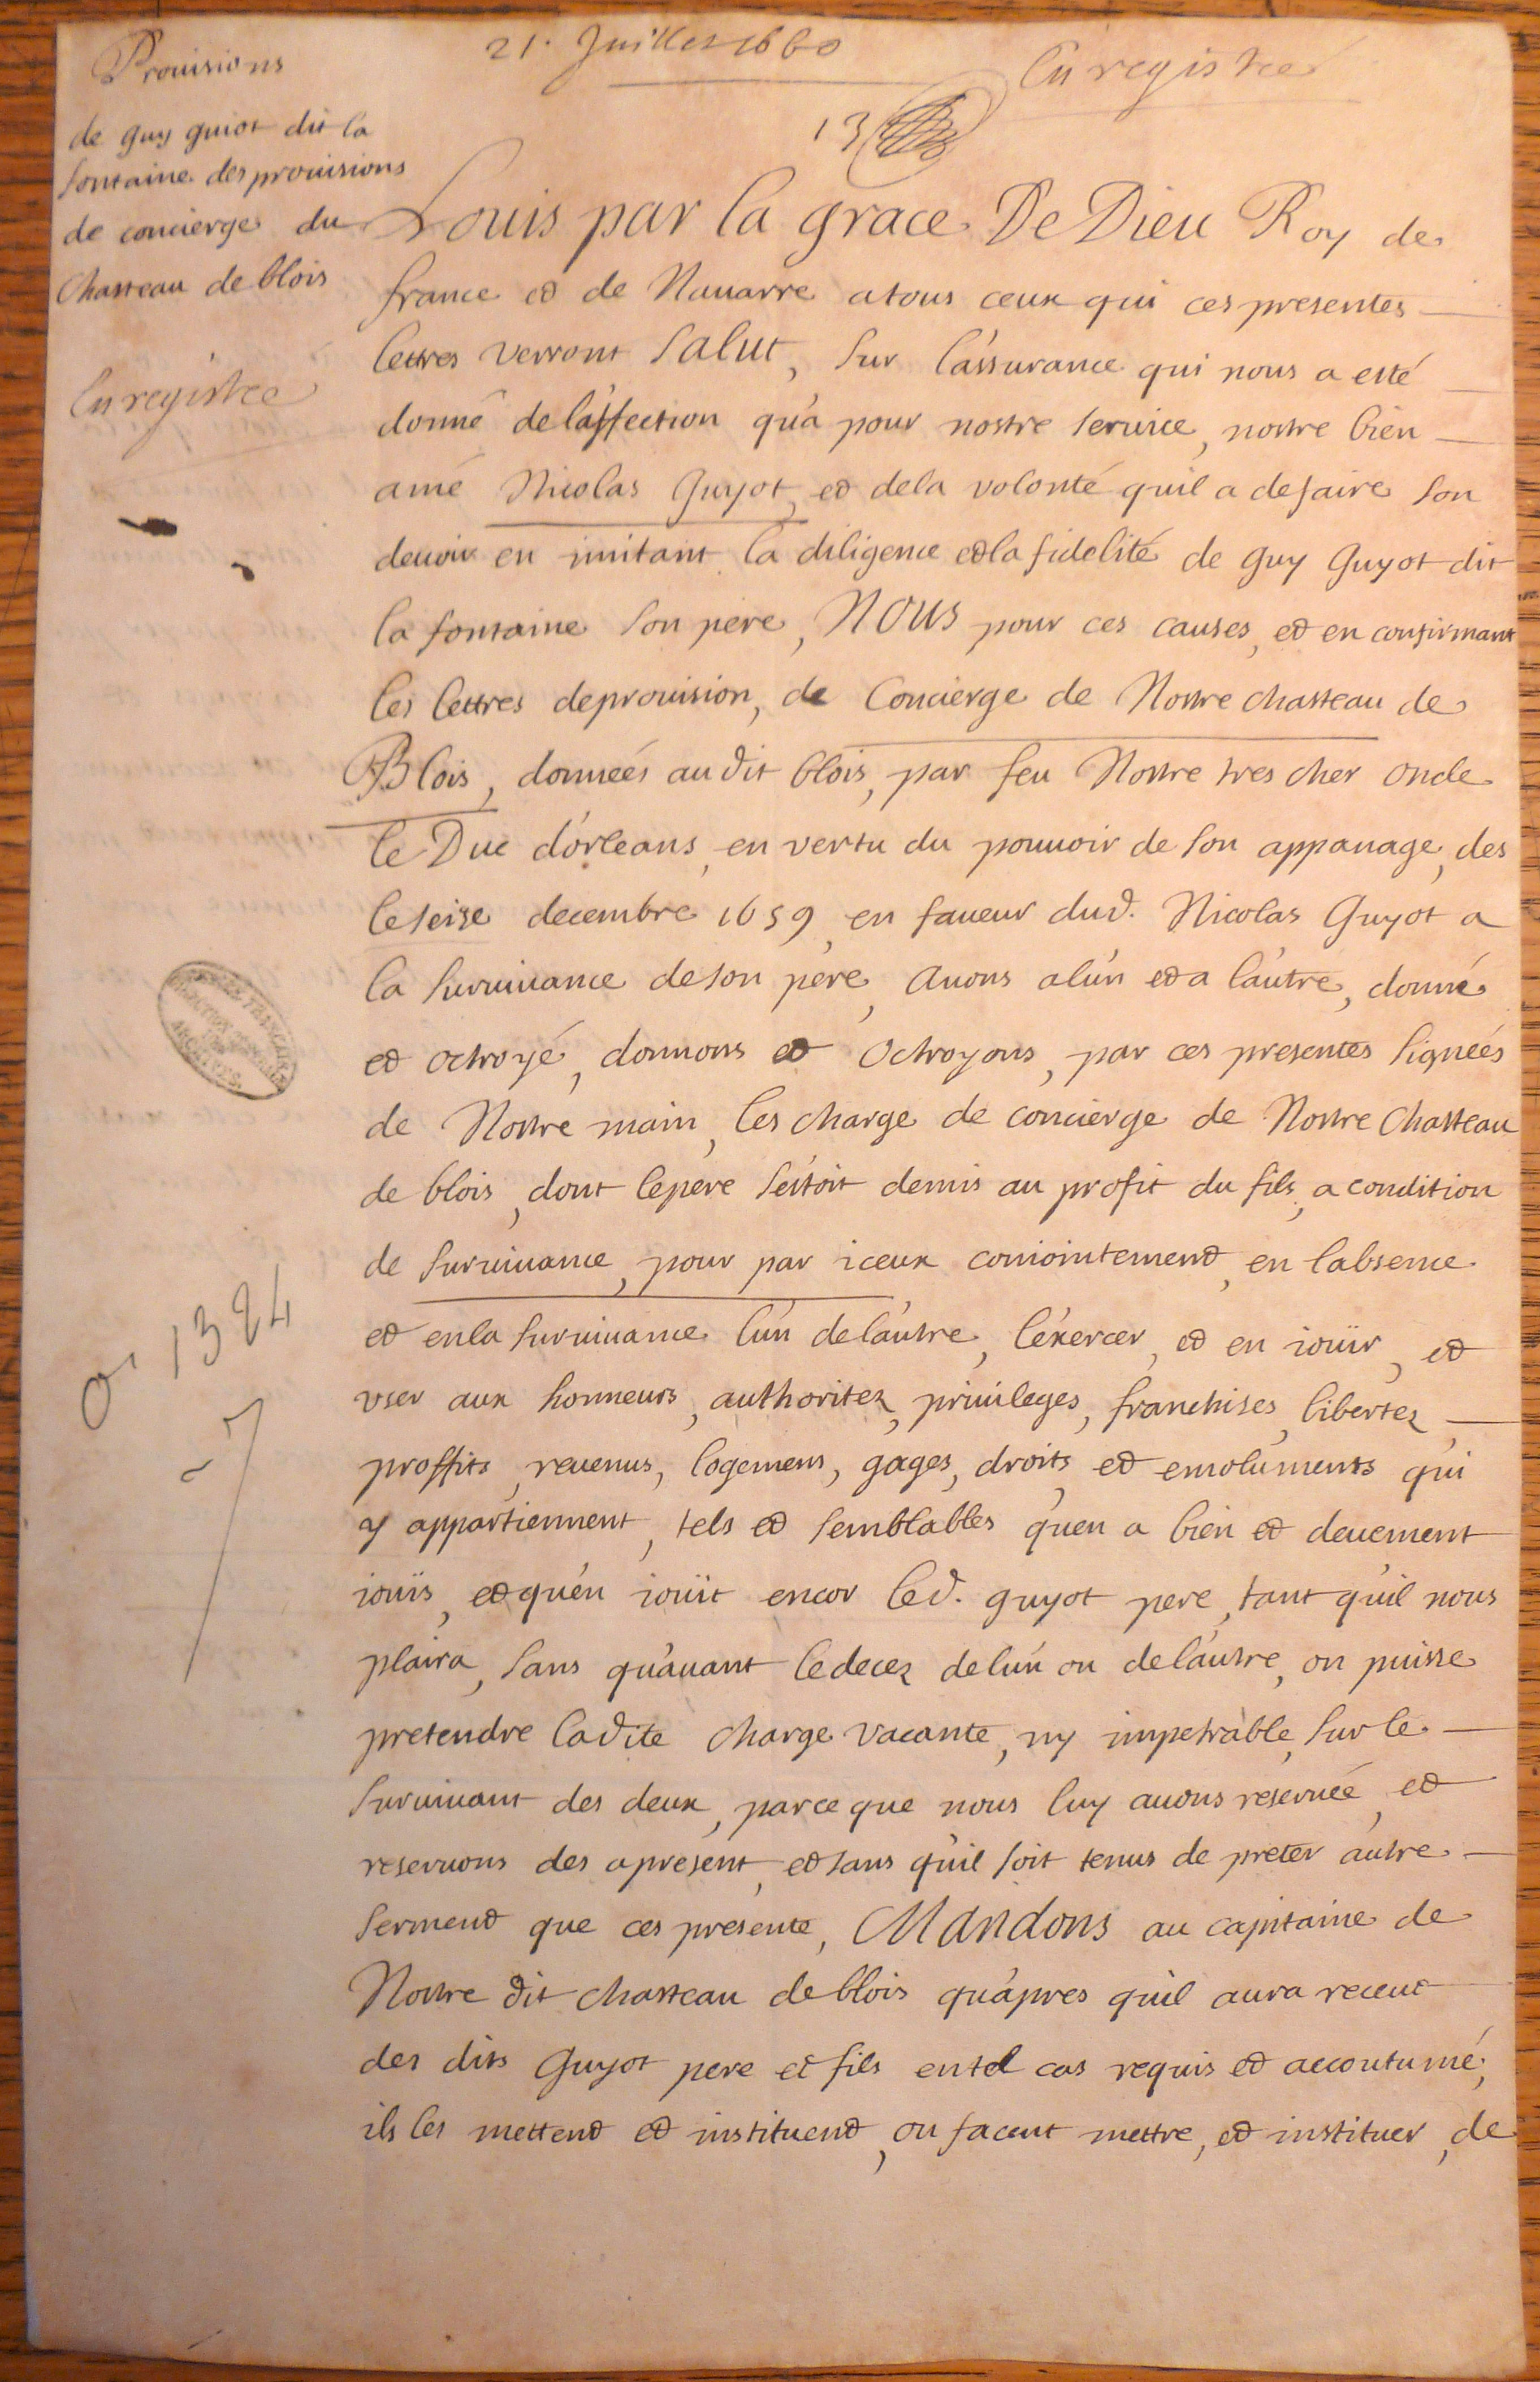 21. Juillet 1660
Enregistrée
13
Prouisions
de guy guiot dit la
fontaine des prouisions
de concierge du
Chasteau de blois
Enregistrée
Louis par la grace De Dieu Roy de
france et de Nauarre atous ceux qui ces presentes
lettres verront Salut, sur l'assurance qui nous a esté
donné de l'affection qu'a pour nostre seruice, nostre bien
amé Nicolas Guyot, et dela volonté quil a defaire son
deuoir en imitant la diligence et la fidelité de Guy Guyot dit
la fontaine son pere, NOUS pour ces causes, et en confirmant
les lettres deprouision, de Concierge de Nostre chasteau de
Blois, donneés au dit blois, par feu Nostre tres cher oncle
le Duc d'orleans, en vertu du pouuoir de son appanage, des
le seize decembre 1659, en faueur dud. Nicolas Guyot a
la suruiuance de son pere, Auons a l'un et a l'autre, donné
et octroyé, donnons et octroyons, par ces presentes signeés
de Nostre main, les charge de concierge de Nostre Chasteau
de blois, dont lepere s'estoit demis au profit du fils, a condition
de suruiuance, pour par iceux coniointement, en l'absence
et enla suruiuance l'un de l'autre, l'exercer, et en ioüir, et
vser aux honneurs, authoritez, priuileges, franchises, libertez
proffits, reuenus, logemens, gages, droits, et emoluments qui
y appartiennent, tels et semblables qu'en a bien et deuement
ioüis, et qu'en ioüit encor led. guyot pere, tant qu'il nous
plaira, sans qu'auant le decez de l'un ou de l'autre, on puisse
pretendre ladite charge vacante, ny impetrable, sur le
suruiuant des deux, parce que nous luy auons reseruée, et
reseruons des apresent, et sans qu'il soit tenus de preter autre
serment que ces presente, Mandons au capitaine de
Nostre dit chasteau de blois qu'apres qu'il aura receut
des dits Guyot pere et fils en tel cas requis et accoutumé,
ils les mettend et instituend, ou facent mettre, et instituer, de
O1 1324
ARCHIVES